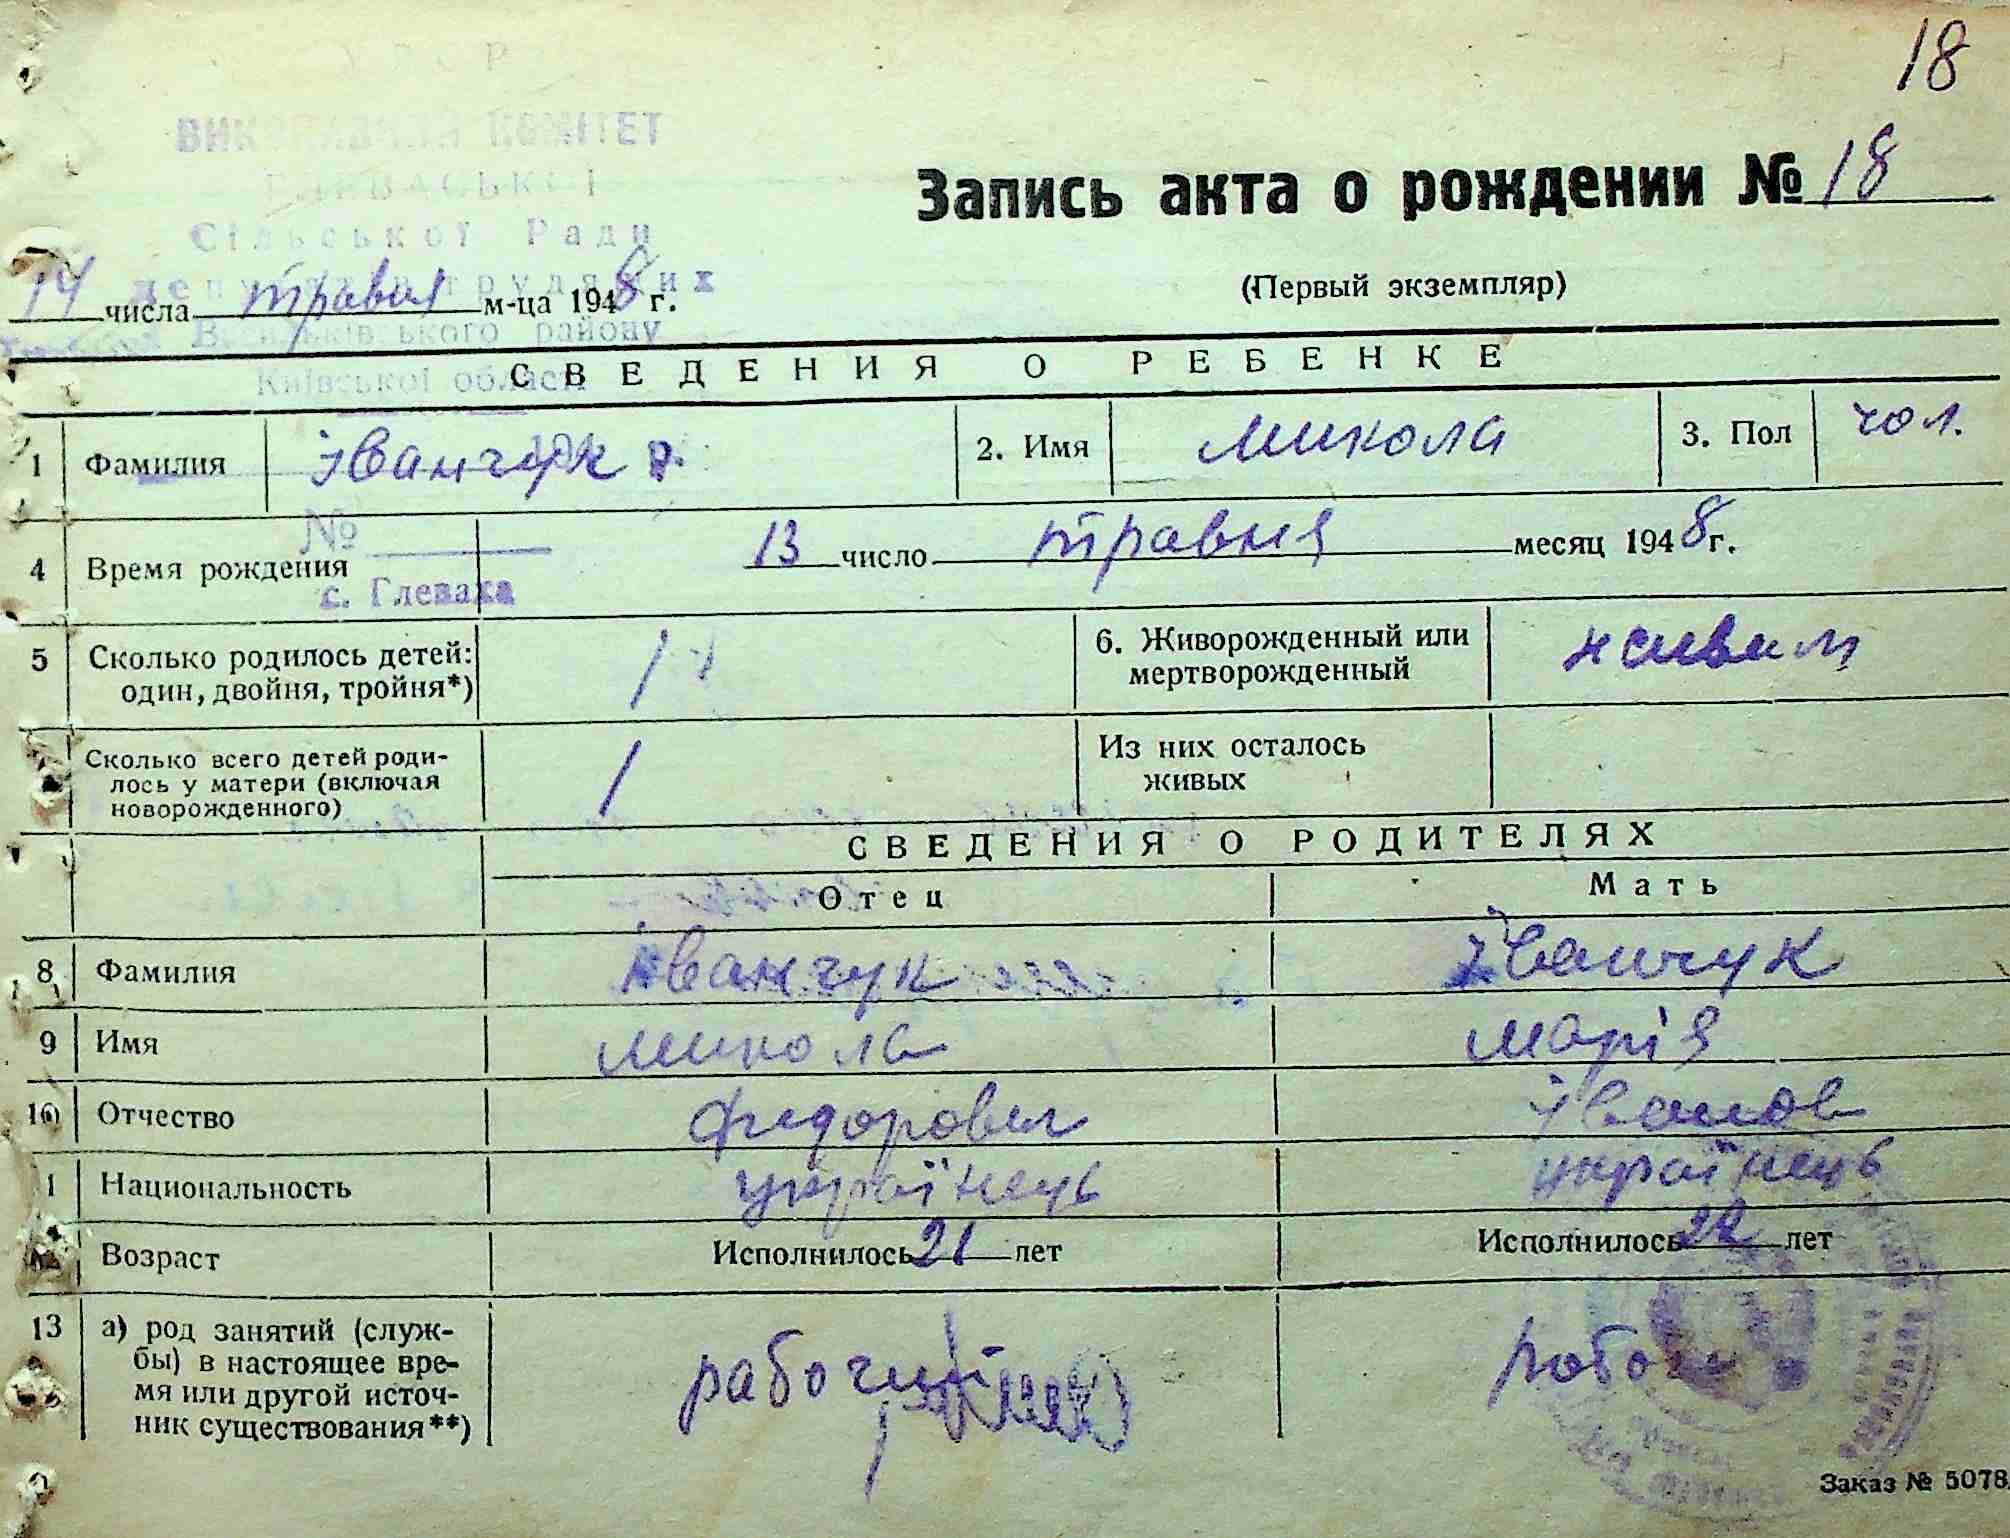 18
ВИКОНАВЧИЙ КОМІТЕТ
ГЛЕВАСЬКОЇ
Сільської Ради
депутатів трудящих
Васильківського району
Київської області
№
с. Глеваха
Запись акта о рождении № 18
(Первый экземпляр)
14 числа травня м-ца 1948 г.
СВЕДЕНИЯ О РЕБЕНКЕ
1 Фамилия Іванчук 2. Имя Микола 3. Пол чол.
4 Время рождения 13 число травня месяц 1948 г.
5 Сколько родилось детей: 1 6. Живорожденный или
один, двойня, тройня*) мертворожденный
Сколько всего детей роди- 1 Из них осталось
лось у матери (включая живых
новорожденного)
СВЕДЕНИЯ О РОДИТЕЛЯХ
Отец Мать
8 Фамилия Іванчук Іванчук
9 Имя Микола Марія
10 Отчество Федорович Іванов
1 Национальность українець українець
Возраст Исполнилось 21 лет Исполнилось 22 лет
13 а) род занятий (служ- рабочий
бы) в настоящее вре-
мя или другой источ-
ник существования**)
Заказ № 5078